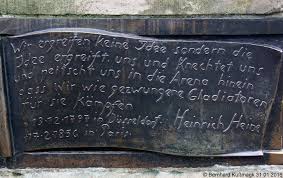 Wir ergreifen keine Idee sondern die
Idee ergreift uns und Knechtet uns
und peitscht uns in die Arena hinein
dass wir wie gezwungene Gladiatoren
für sie Kämpfen
*13.12.1797 in Düsseldorf Heinrich Heine
17.2.1856 in Paris
© Bernhard Kußmagk 31.01.2016